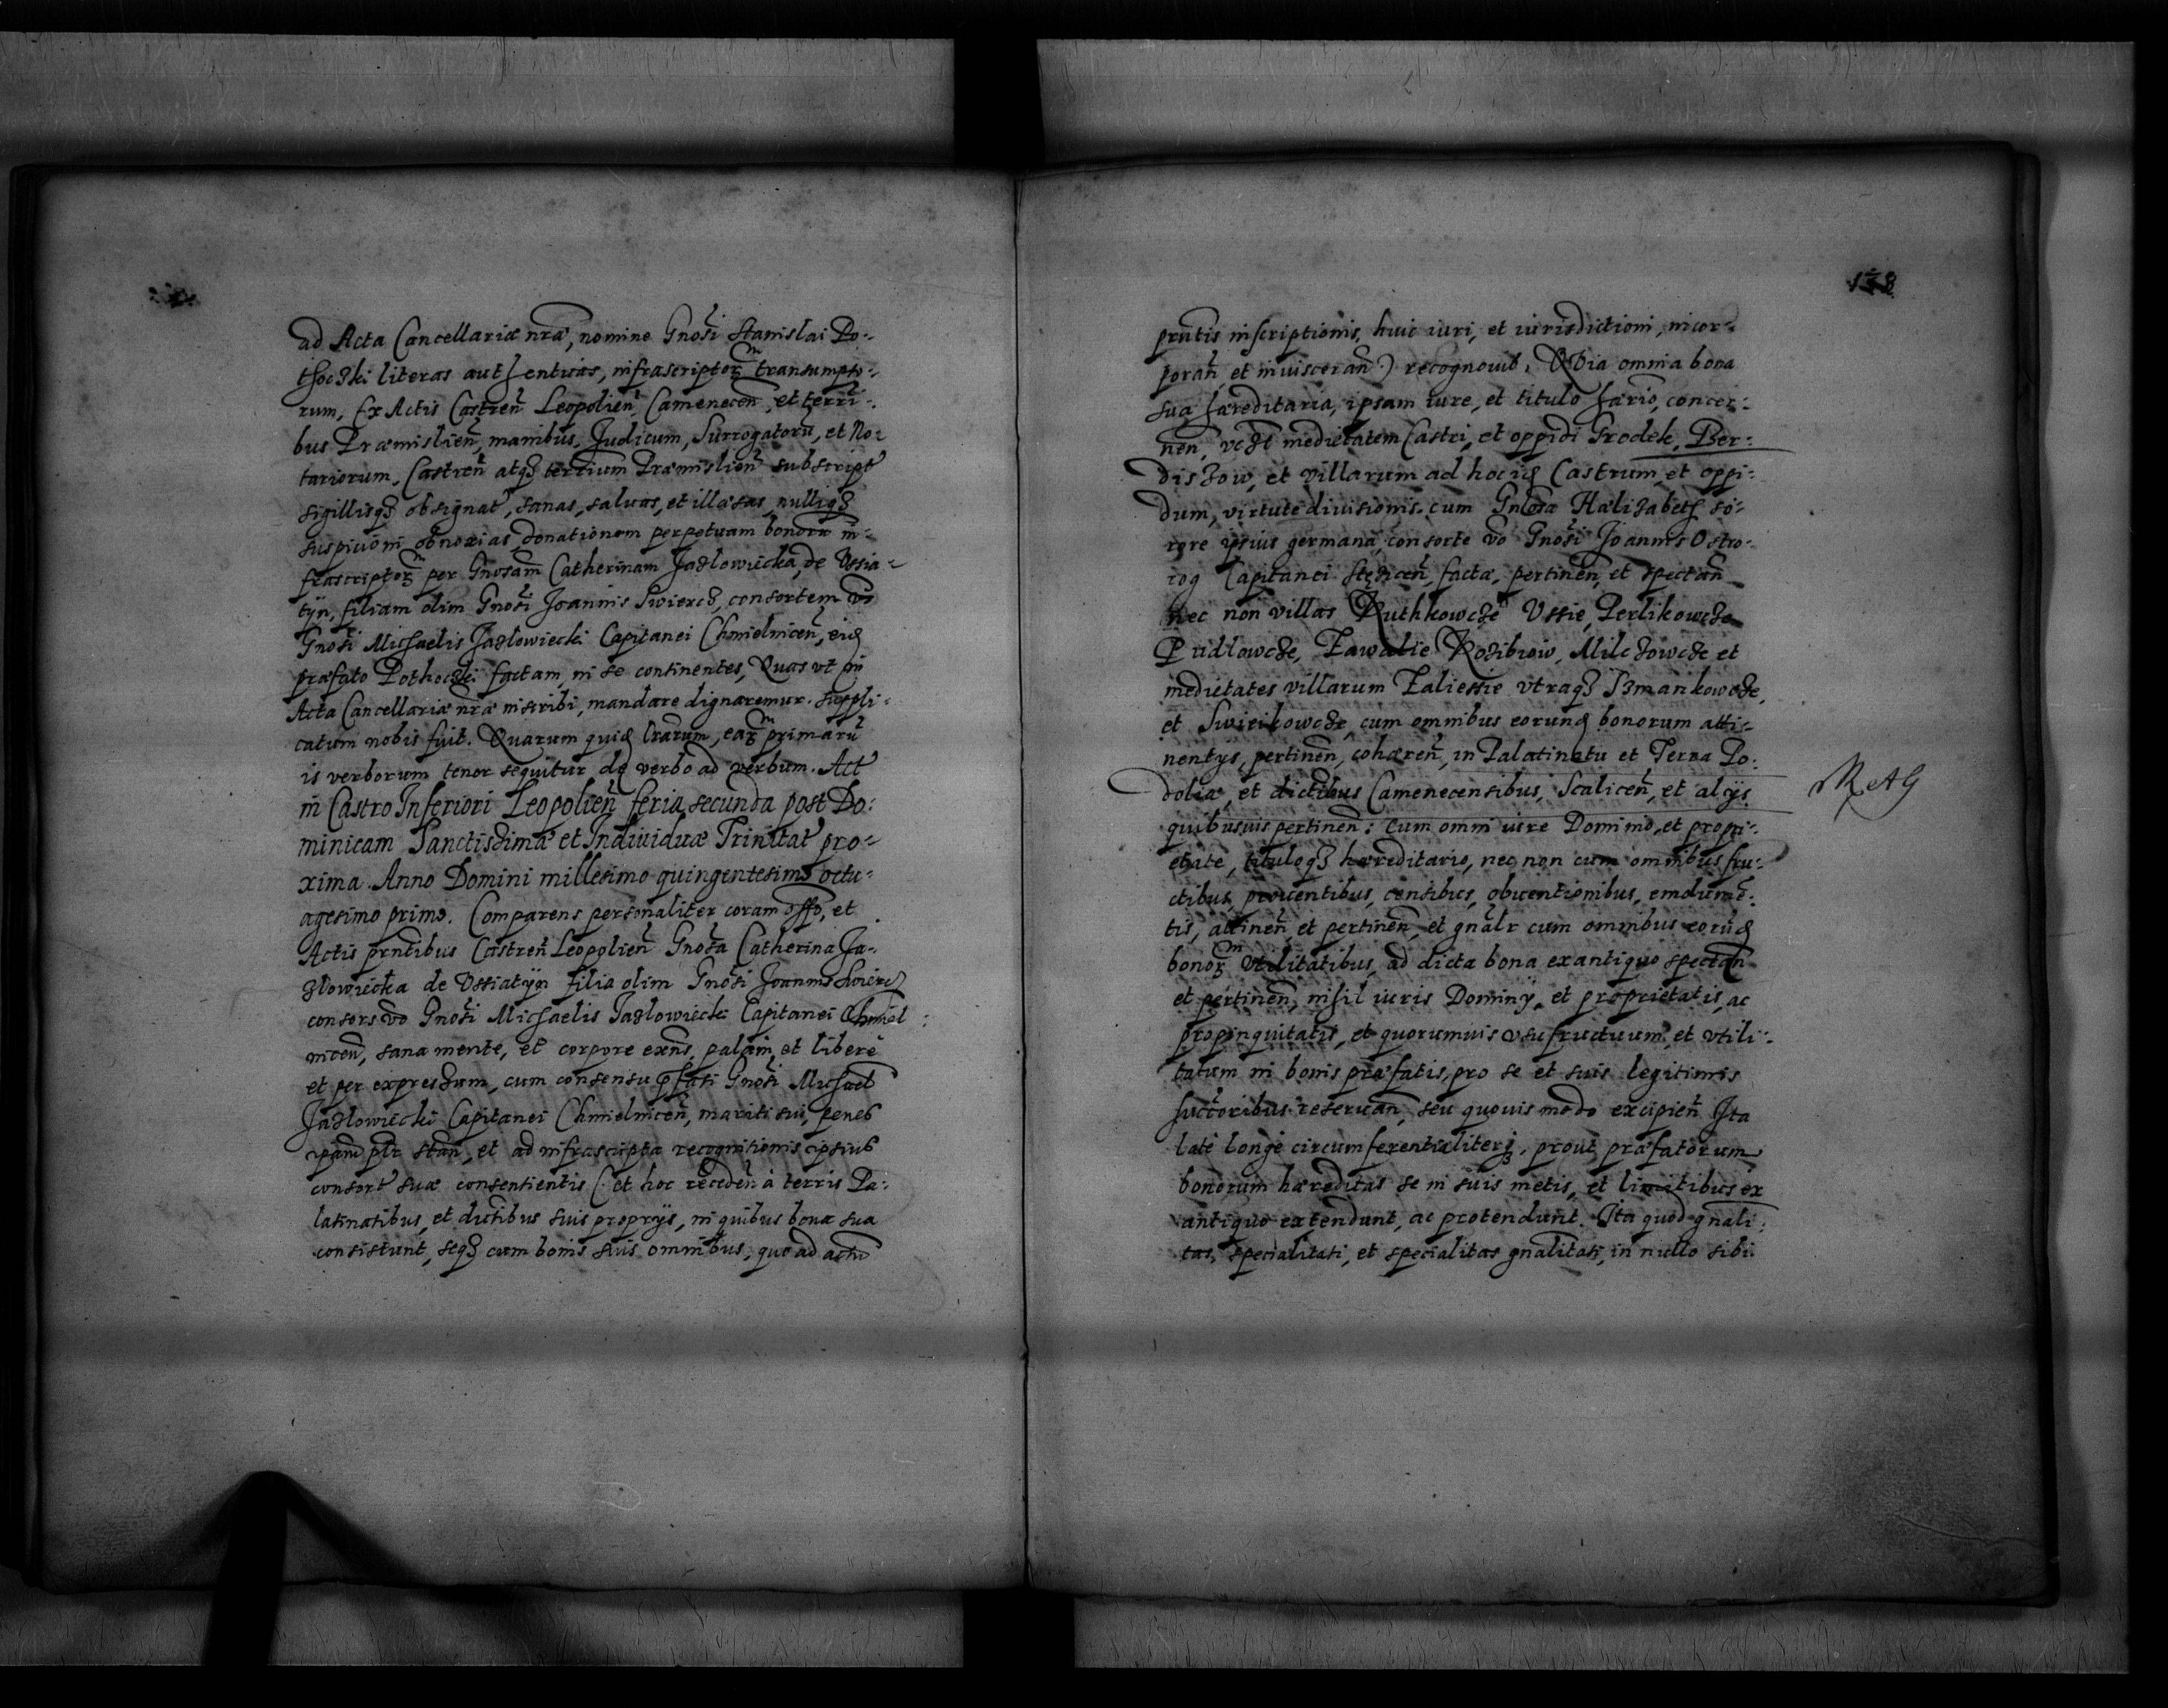 ad Acta Cancellariæ nræ, nomine Gnosi Stanislai Po-
thoczki literas authenticas, infrascriptor transumpto-
rum, Ex Actis Castren Leopolien, Camenecen, et terri-
bus Præmislien, manibus, Judicum, Surrogatorũ, et No-
tariorum, Castren atqȝ terrium Præmislien subscript
sigillisqȝ obsignat, sanas, saluas, et illæsas, nulliqȝ
suspicioni obnoxias, donationem perpetuam bonorũ in-
frascriptor per Gnosam Catherinam Jazlowiecka, de Ussia-
tyn, filiam olim Gnosi Joannis Swiercz, consortem vo
Gnosi Michaelis Jazlowiecki Capitanei Chmielnicen, eid
præfato Pothoczki factam, in se continentes, Quas vt in
Acta Cancellariæ nræ inscribi, mandare dignaremur. suppli-
catum nobis fuit. Quarum quid lrarum, ear primarũ
is verborum tenor sequitur de verbo ad verbum. Act
in Castro Inferiori Leopolien feria secunda post Do:
minicam Sanctissimæ et Individuæ Trinitat pro-
xima. Anno Domini millesimo quingentesimo octu-
agesimo primo. Comparens personaliter coram offo, et
Actis prntibus Castren Leopolien Gnosa Catherina Ja-
zlowiecka de Ussiatyn filia olim Gnosi Joannis Swierc
consors vo Gnosi Michaelis Jazlowiecki Capitanei Chmiel:
nicen, sana mente, et corpore exns, palam, et libere
et per expressum, cum consensu pfati Gnosi Michael
Jazlowiecki Capitanei Chmielnicen, mariti sui, penes
ipsam plr stan, et ad infrascripta recognitionis ipsius
consort suæ consentientis (. et hoc receden à terris Pa-
latinatibus, et dictibus suis proprijs, in quibus bona sua
consistunt, seqȝ cum bonis suis omnibus, quo ad actũ
138
prntis inscriptionis, huic iuri, et iurisdictioni, incor-
poran, et inuisceran .) recognouit, Quia omnia bona
sua hæreditaria, ipsam iure, et titulo hærio, concer-
nen, vczt medietatem Castri, et oppidi Grodek, Ber-
diszow, et villarum ad hocid Castrum, et oppi-
dum, virtute diuisionis cum Gnosa Hælizabeth so-
rore ipsius germana, consorte vo Gnosi Joannis Ostro-
rog Capitanei Stęzicen, facta, pertinen, et spectan
nec non villas Ruthkowcze Ussie, Perlikowcze
Pudlowcze, Zawalie Rozibrow, Milczowcze et
medietates villarum Zaliessie vtraqȝ Izmankowcze,
et Swirikowcze, cum omnibus eorund bonorum atti-
nentijs, pertinen, cohæren, in Palatinatu et Terra Po-
doliæ, et dictibus Camenecensibus, Scalicen, et alijs
quibusuis pertinen: cum omni iure Dominio, et propri-
etate, tituloqȝ hæreditario, nec non cum omnibus fru-
ctibus, prouentibus, censibus, obuentionibus, emolumẽ-
tis, attinen et pertinen, et gnalr cum omnibus eorũd
bonor Vtilitatibus, ad dicta bona ex antiquo spectan
et pertinen, nihil iuris Dominij, et proprietatis, ac
propinquitatis, et quorumuis vsufructuum, et vtili-
tatum in bonis præfatis, pro se et suis legitimis
succoribus reseruan, seu quouis modo excipien Ita
latè longè circumferentialiterqȝ, prout præfatorum
bonorum hæreditas se in suis metis, et limitibus ex
antiquo extendunt, ac protendunt. Ita quod gnali-
tas, specialitati, et specialitas gnalitati, in nullo sibi